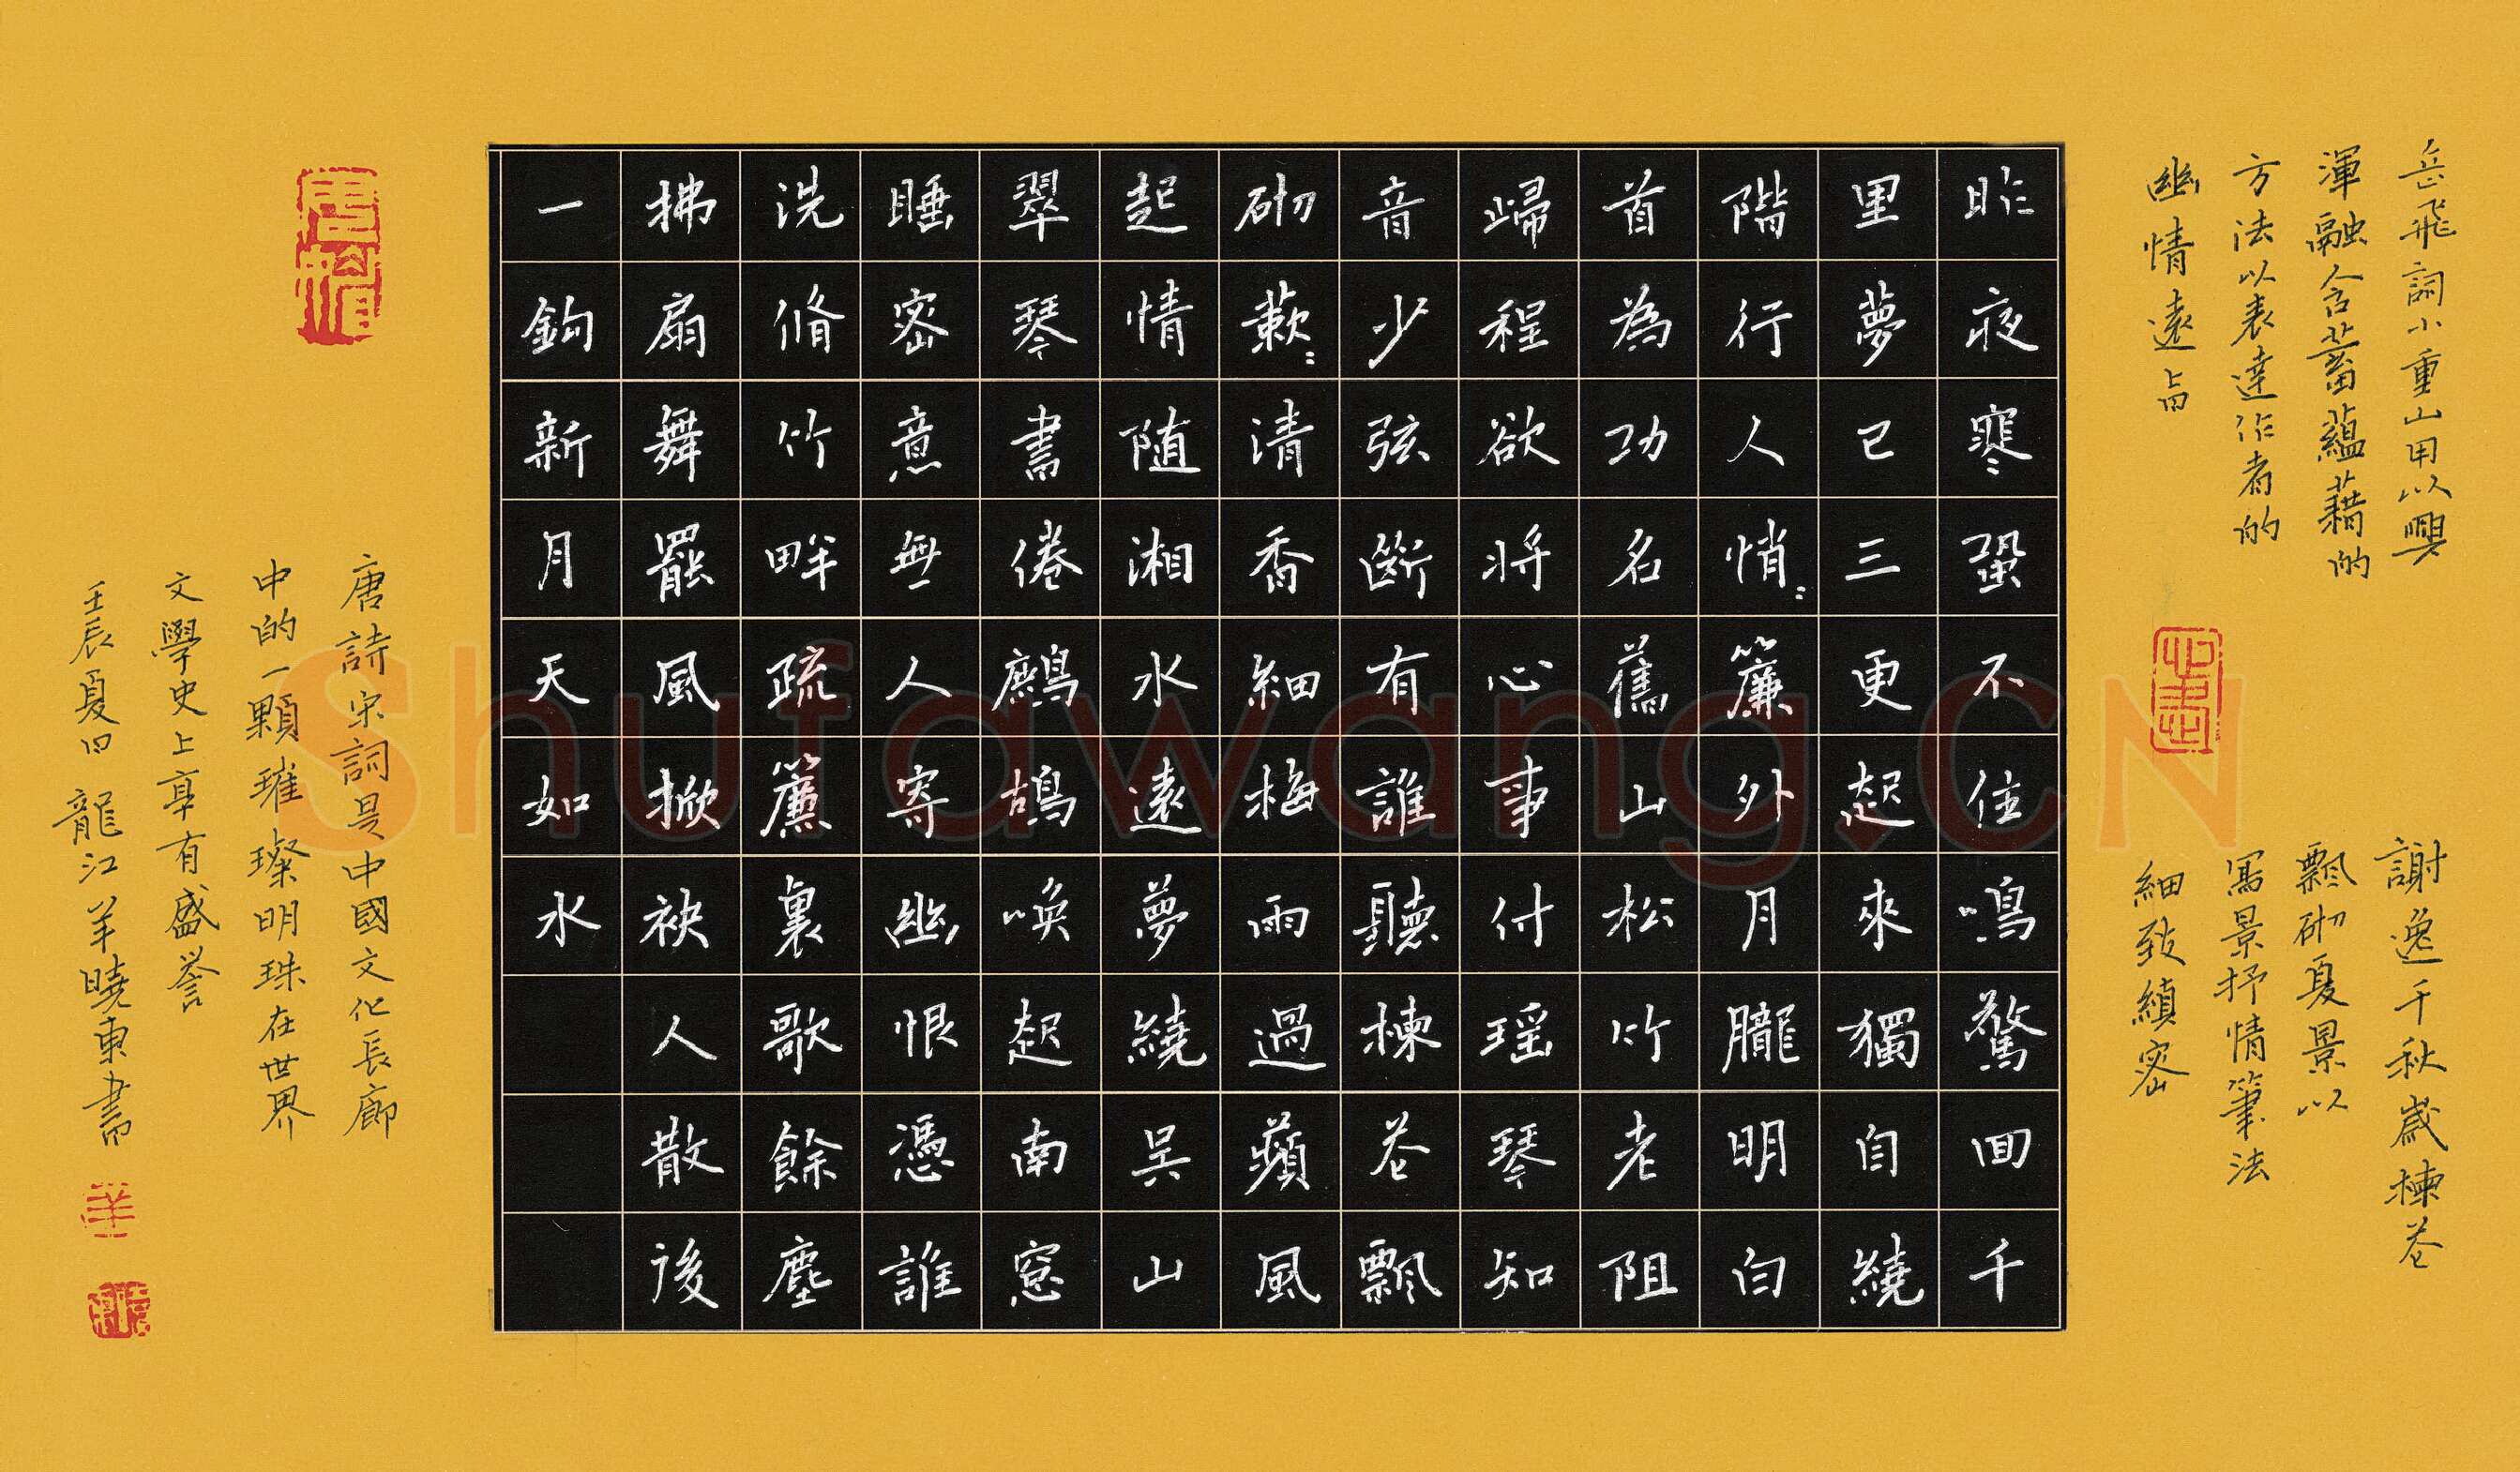 岳飛詞小重山用以興
渾融含蓄蘊藉的
方法以表達作者的
幽情遠旨
謝逸千秋歲楝花
飄砌夏景以
寫景抒情筆法
細致縝密
昨夜寒蛩不住鳴驚回千
里夢已三更起來獨自繞
階行人悄〻簾外月朧明白
首為功名舊山松竹老阻
歸程欲將心事付瑶琴知
音少弦斷有誰聽楝花飄
砌蔌〻清香細梅雨過蘋風
起情随湘水遠夢繞吴山
翠琴書倦鷓鴣喚起南窓
睡密意無人寄幽恨憑誰
洗脩竹畔疏簾裏歌餘塵
拂扇舞罷風掀袂人散後
一鈎新月天如水
唐詩宋詞是中國文化長廊
中的一顆璀璨明珠在世界
文學史上享有盛誉
壬辰夏日龍江羊曉東書
Shufawang.CN